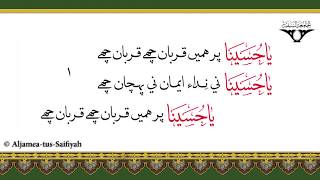 ياحُسَيْنَا پر همیں قربان چھے قربان چھے
ياحُسَيْنَا ني نداء ايمان ني پہچان چھے
ياحُسَيْنَا پر همیں قربان چھے قربان چھے
١
© Aljamea-tus-Saifiyah